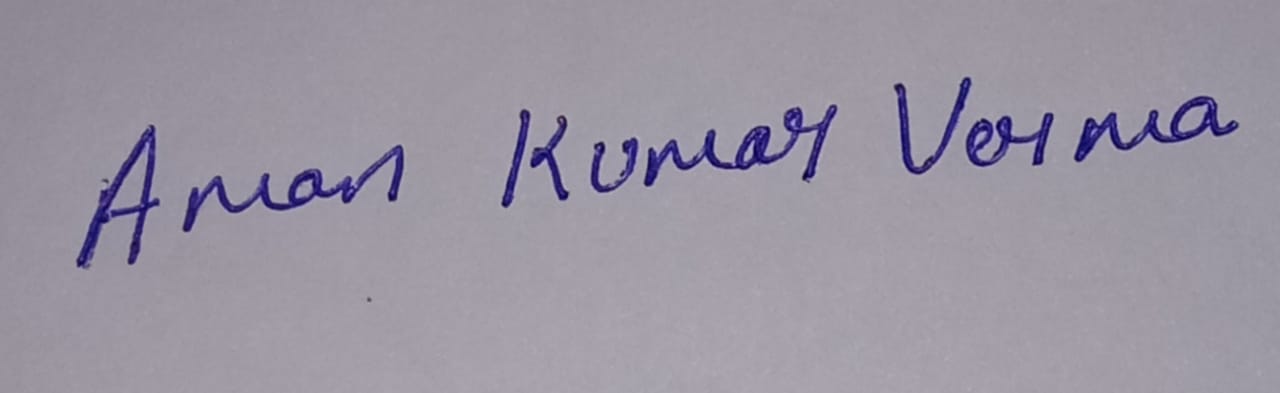 Aman Kumar Verma